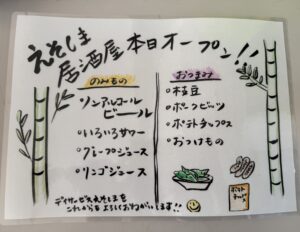 えそしま
居酒屋 本日オープン!!
のみもの
・ノンアルコール
ビール
・いろいろサワー
・グレープジュース
・リンゴジュース
おつまみ
・枝豆
・ポークビッツ
・ポテトチップス
・おつけもの
デイサービスえそしまを
これからもよろしくおねがいします!!
ポテト
チップス